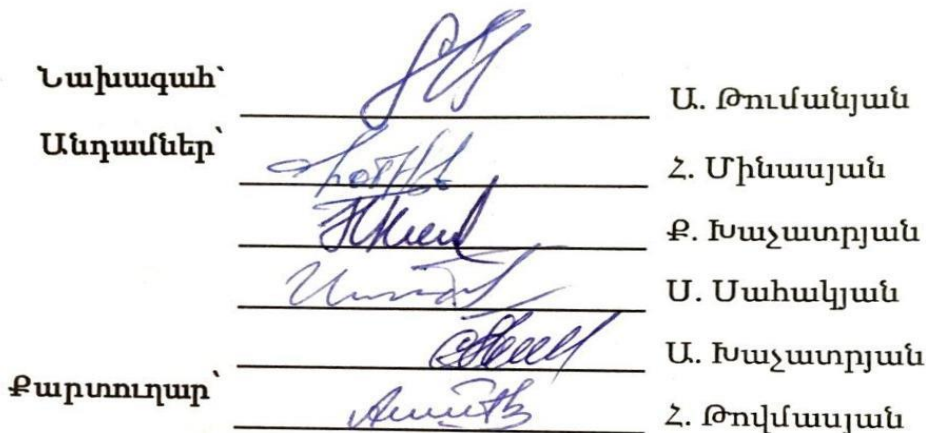 Նախագահ՝ Ա. Թումանյան
Անդամներ՝ Հ. Մինասյան
Ք. Խաչատրյան
Ս. Սահակյան
Ա. Խաչատրյան
Քարտուղար՝ Հ. Թովմասյան